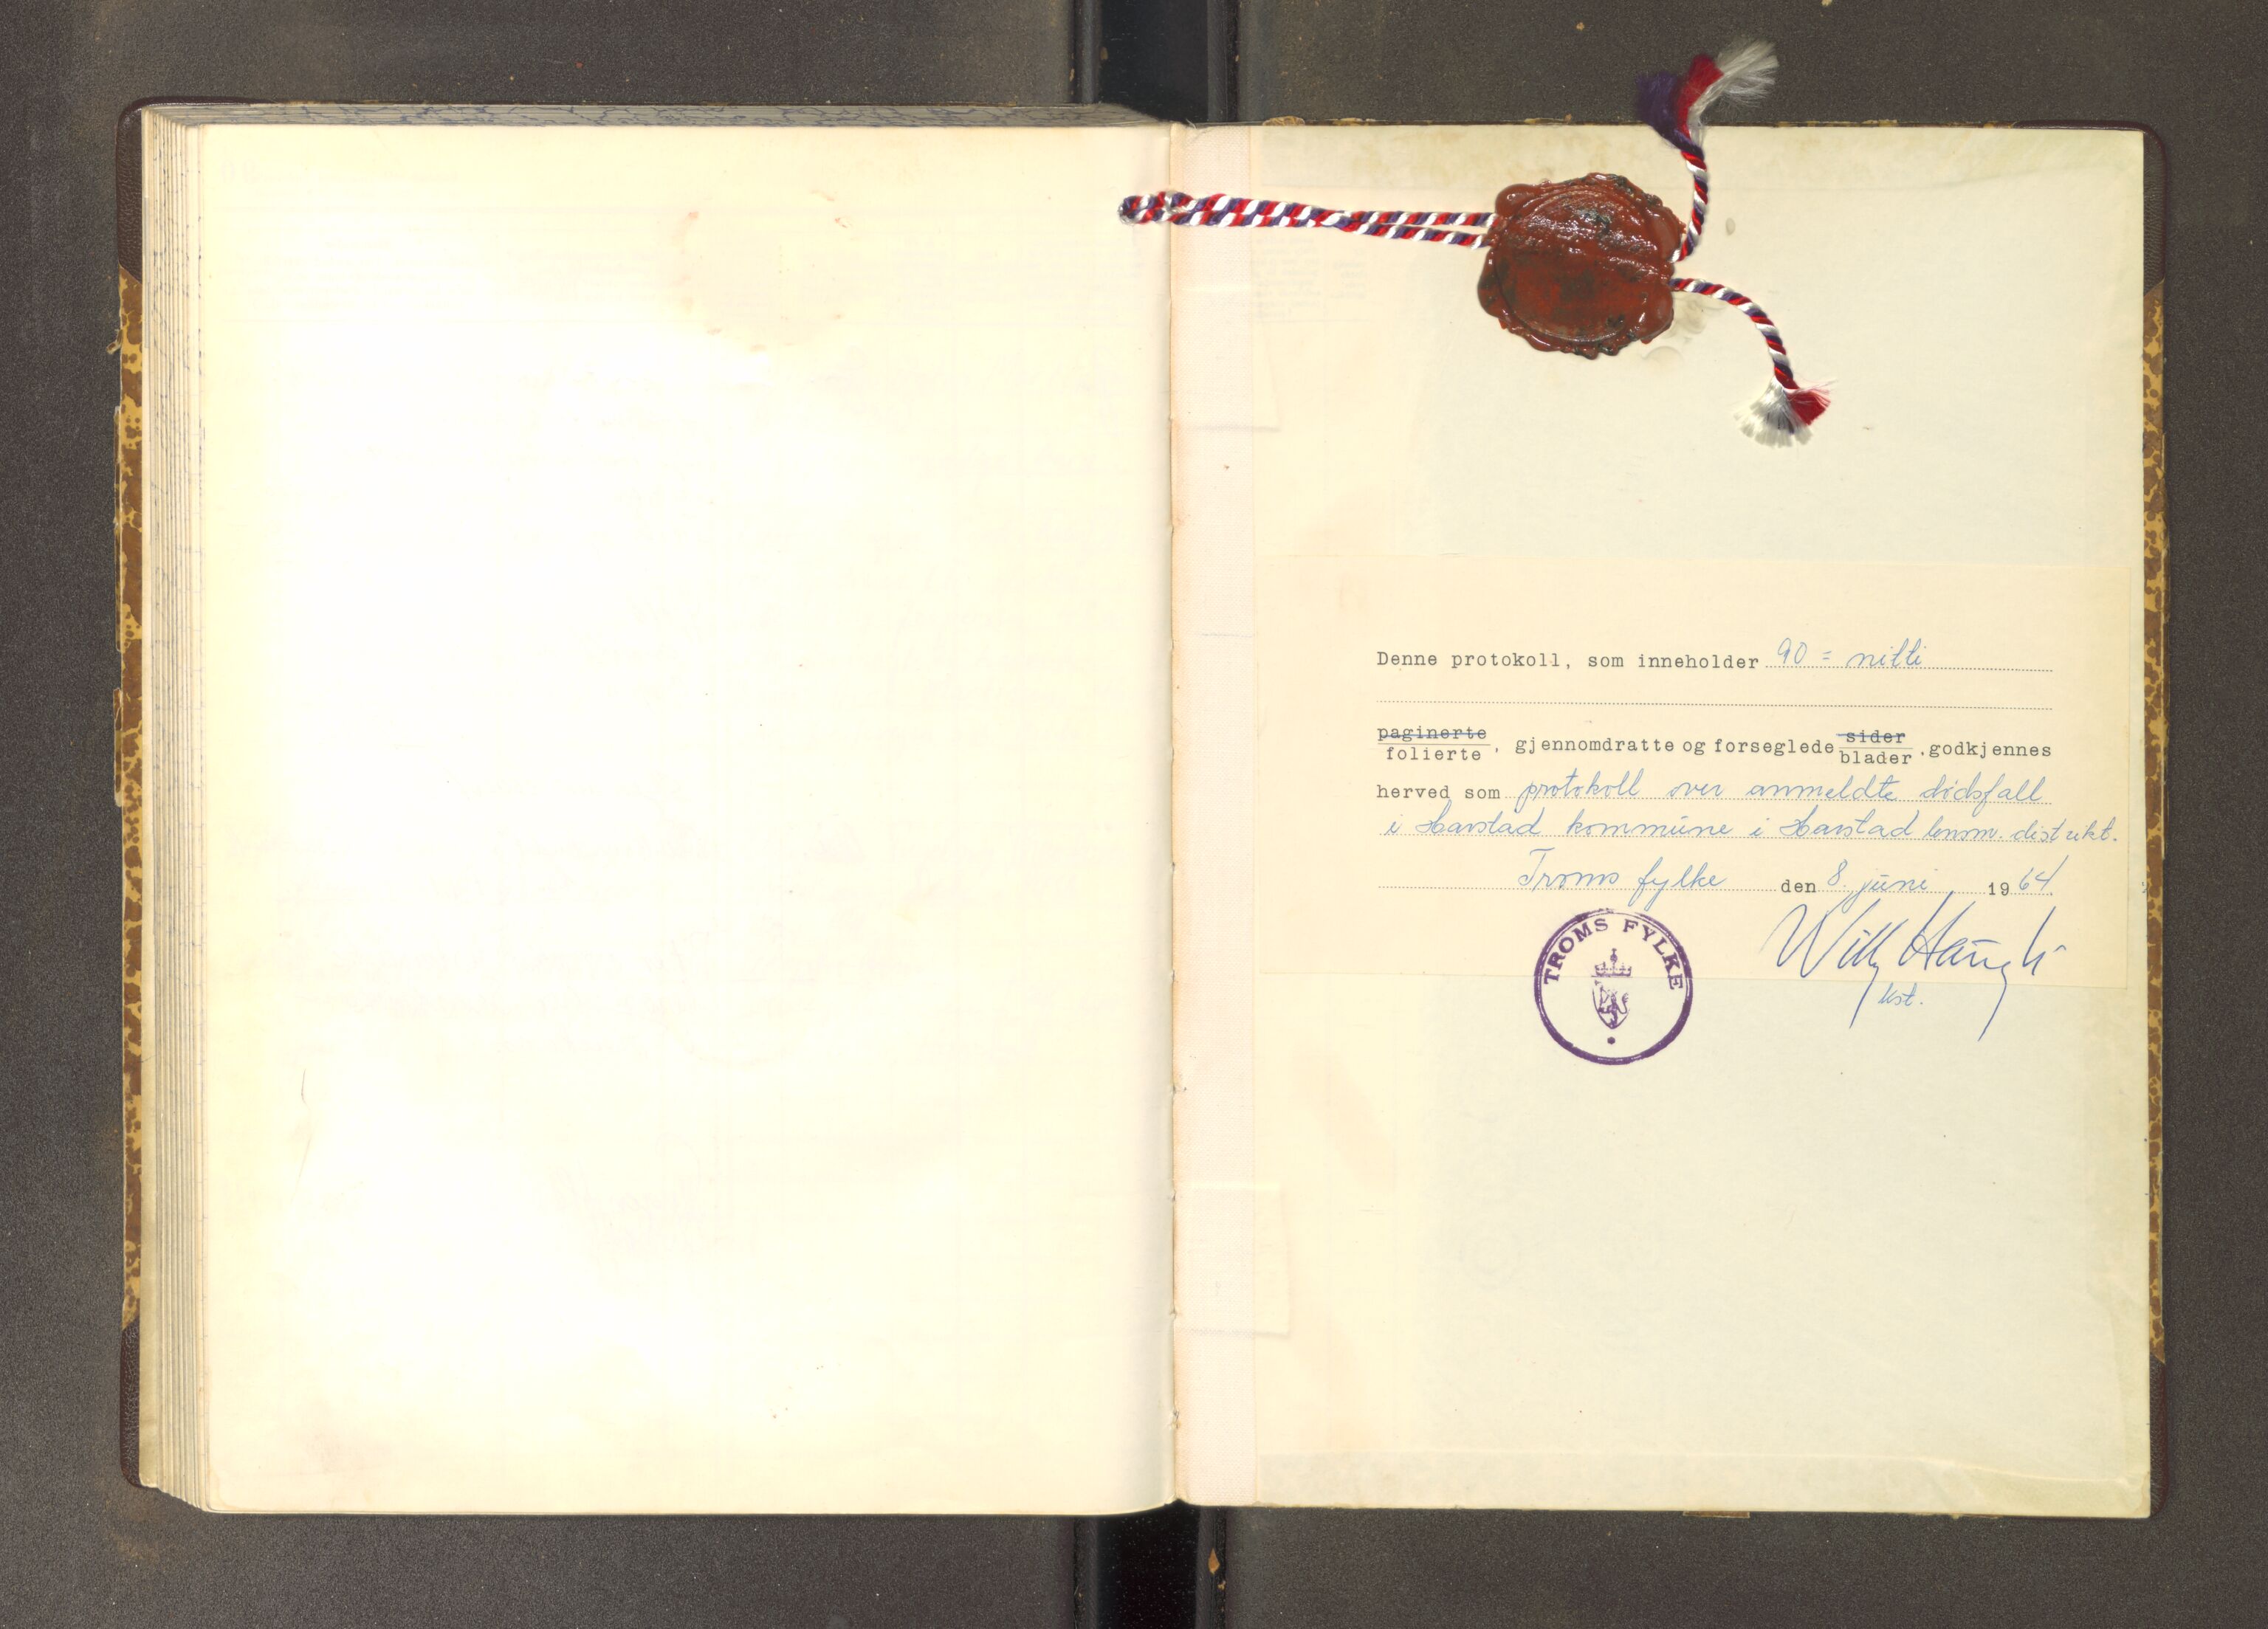 Denne protokoll, som inneholder 90 = nitti
paginerte sider
folierte, gjennomdratte og forseglede blader. godkjennes
herved som protokoll over anmeldte dødsfall
i Harstad kommune i Harstad lensm. distrikt.
Troms fylke den 8. juni 1964.
TROMS FYLKE
Willy Haugli
kst.